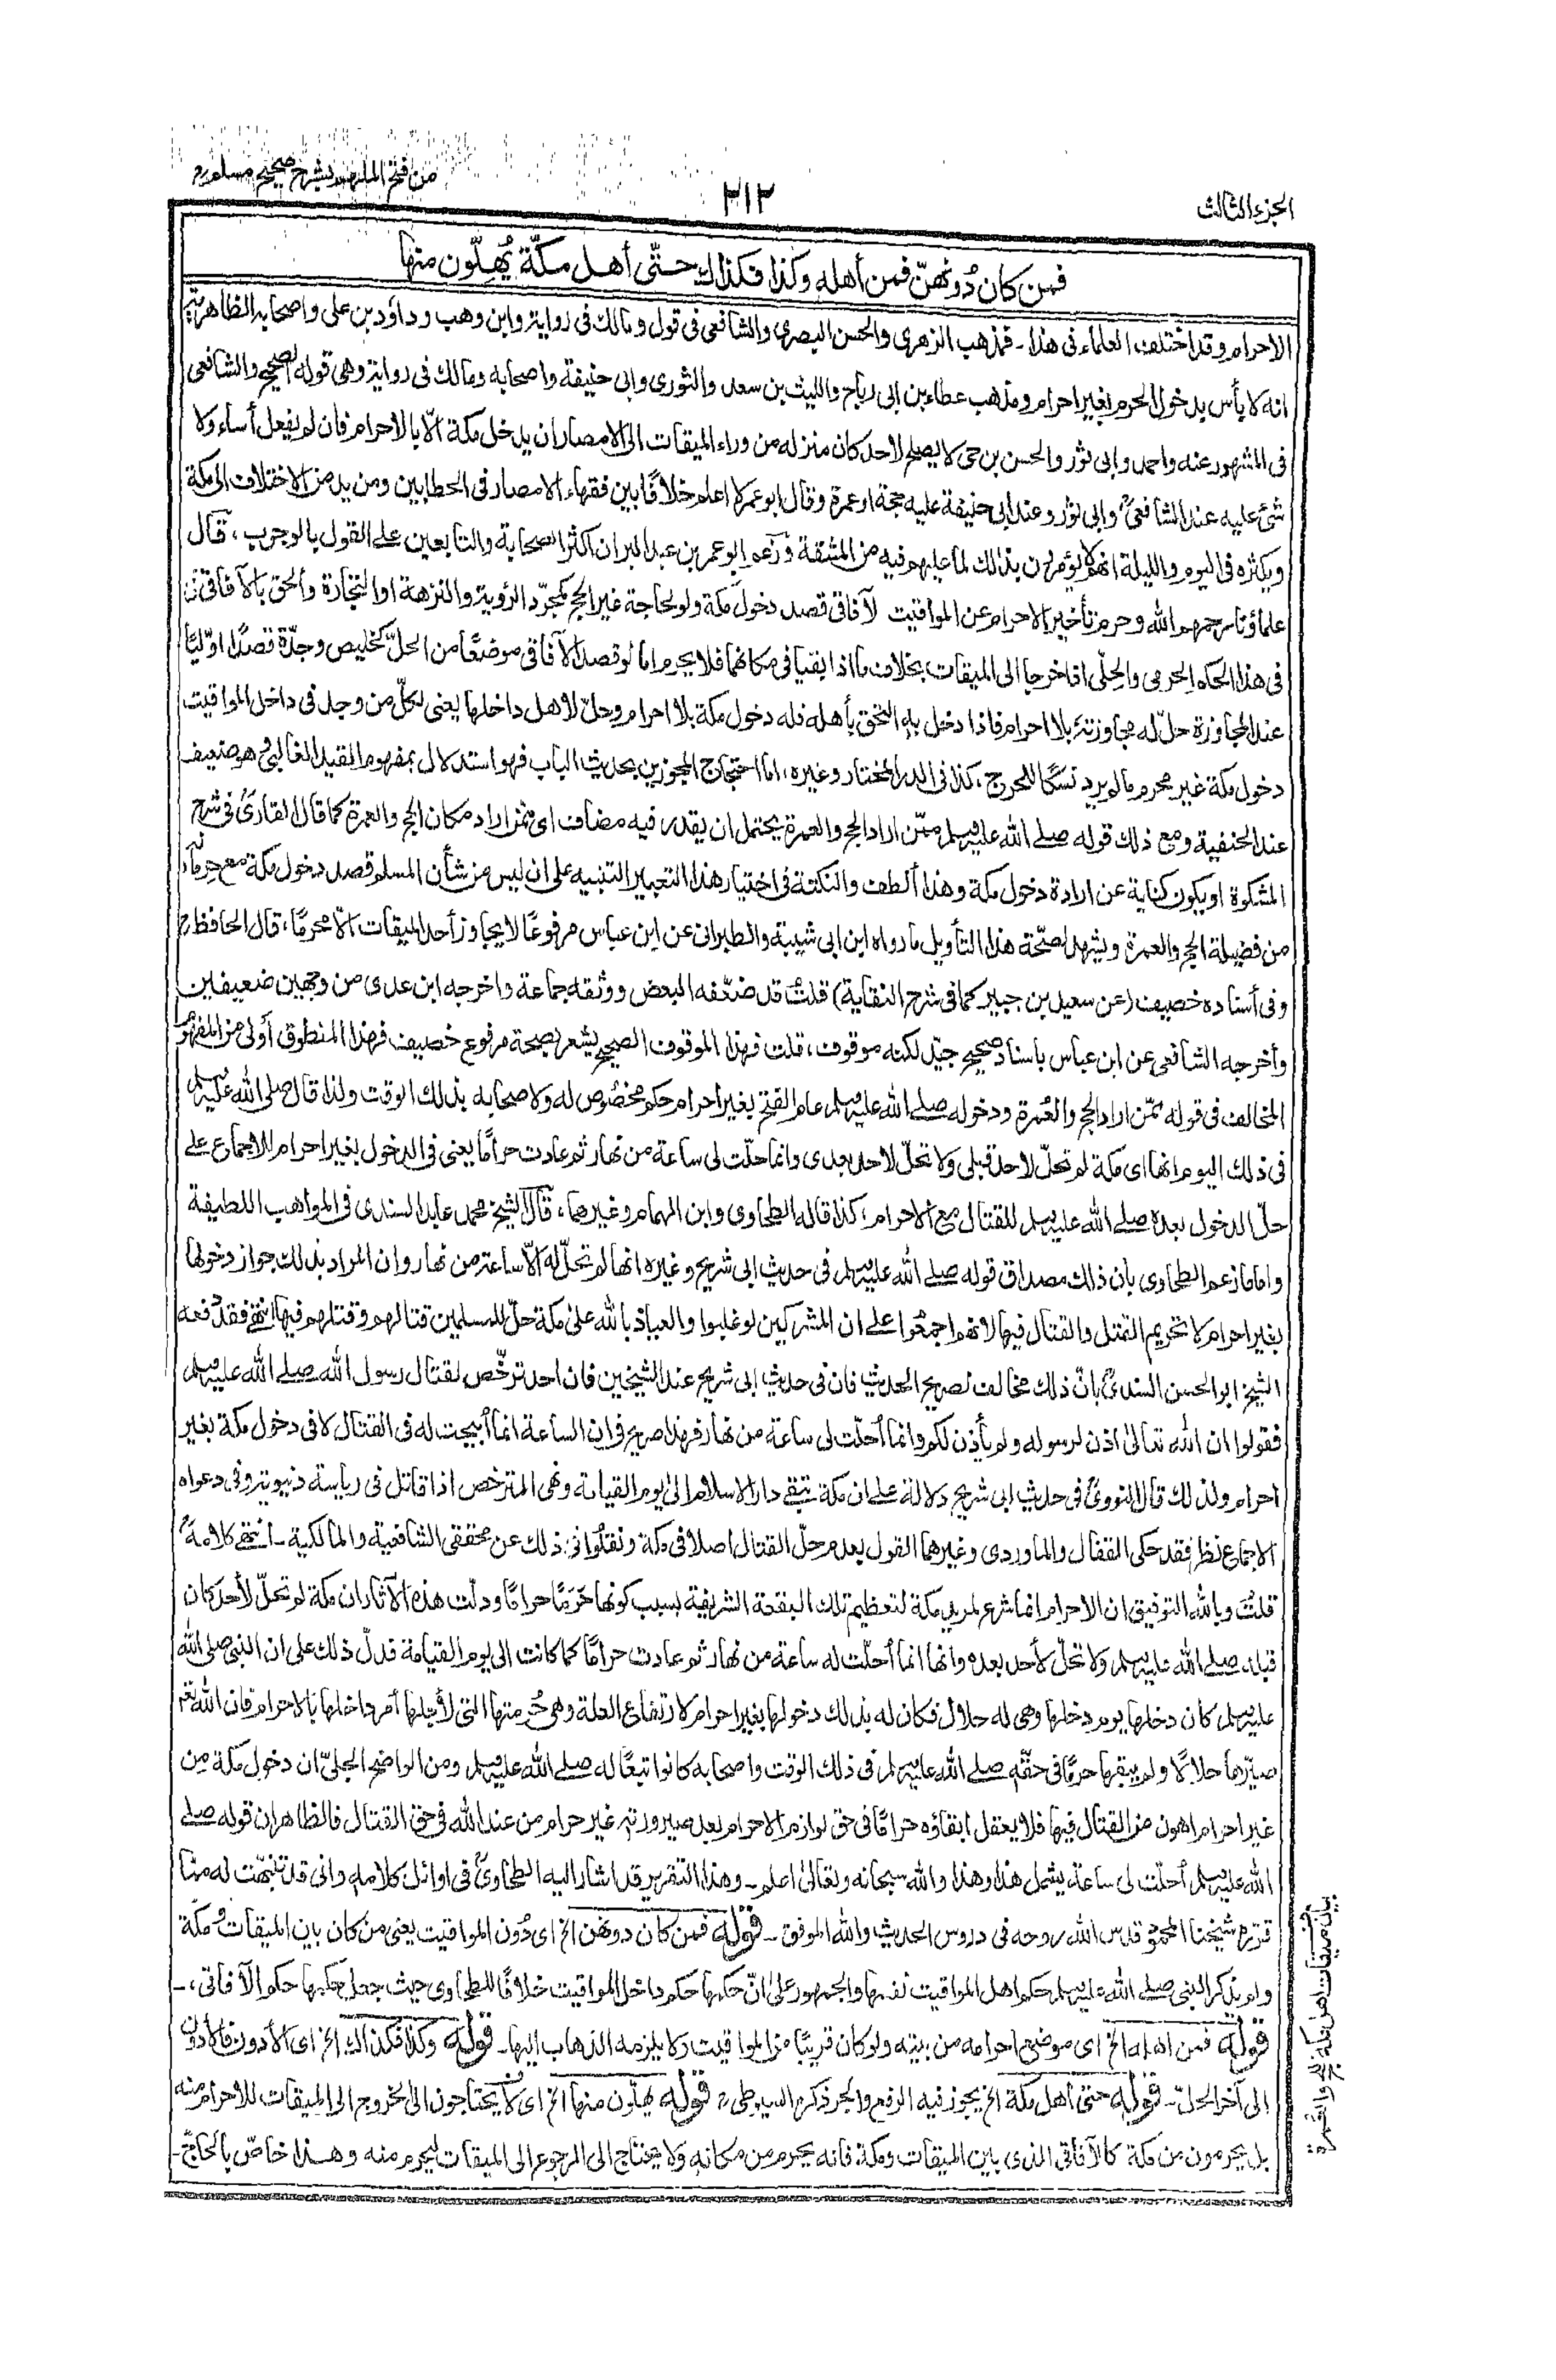 الجزء الثالث
٢١٢
من فتح الملهم بشرح صحيح مسلم
فمن كان دُونهنّ فمن أهله وكذا فكذلك حتّى أهل مكّة يُهِلّون منها
الاحرام وقد اختلف العلماء فى هذا ـ فذهب الزهرى والحسن البصرى والشافعى فى قول ومالك فى رواية وابن وهب وداؤد بن على واصحابه الظاهرية
انه لا بأس بدخول الحرم بغير احرام ومذهب عطاء بن ابى رباح والليث بن سعد والثورى وابى حنيفة واصحابه ومالك فى رواية وهى قوله الصحيح والشافعى
فى المشهور عنه واحمد وابى ثور والحسن بن حى لا يصلح لاحد كان منزله من وراء الميقات الى الامصار ان يدخل مكة الّا بالاحرام فان لم يفعل أساء ولا
شئ عليه عند الشافعىؒ وابى ثور وعند ابى حنيفة عليه حجة او عمرة وقال ابو عمر لا اعلم خلافًا بين فقهاء الامصار فى الحطابين ومن يدمن الاختلاف الى مكة
ويكثره فى اليوم والليلة انهم لا يؤمرون بذلك لما عليهم فيه من المشقة وزعم ابو عمر بن عبد البر ان اكثر الصحابة والتابعين على القول بالوجوب، قال
علماؤنا رحمهم الله وحرم تأخير الاحرام عن المواقيت لآفاقى قصد دخول مكة ولو لحاجة غير الحج كمجرّد الرؤية والنزهة او التجارة وألحق بالآفاقى
فى هذا الحكم الحرمى والحِلّى اذا خرجا الى الميقات بخلاف ما اذا بقيا فى مكانهما فلا يحرم اما لو قصد الآفاقى موضعًا من الحلّ كخليص وجدّة قصدًا اوّليًا
عند المجاوزة حلّ له مجاوزته بلا احرام فاذا دخل به التحق بأهله فله دخول مكة بلا احرام وحلّ لاهل داخلها يعنى لكلّ من وجد فى داخل المواقيت
دخول مكة غير محرم ما لم يرد نسكًا للحرج، كذا فى الدر المختار وغيره، اما احتجاج المجوزين بحديث الباب فهو استدلال بمفهوم القيد الغالبى وهو ضعيف
عند الحنفية ومع ذلك قوله صلى الله عليه وسلم ممّن اراد الحج والعمرة يحتمل ان يقدر فيه مضاف اى ممّن اراد مكان الحج والعمرة كما قال القارىؒ فى شرح
المشكوة او يكون كناية عن ارادة دخول مكة وهذا ألطف والنكتة فى اختيار هذا التعبير التنبيه على ان ليس من شأن المسلم قصد دخول مكة مع حرمانه
من فضيلة الحج والعمرة ويشهد لصحّة هذا التأويل ما رواه ابن ابى شيبة والطبرانى عن ابن عباس مرفوعًا لا يجاوز أحد الميقات الّا محرمًا، قال الحافظؒ
وفى أسناده خصيف (عن سعيد بن جبير كما فى شرح النقاية) قلتُ قد ضعّفه البعض ووثقه جماعة واخرجه ابن عدى من وجهين ضعيفين
وأخرجه الشافعى عن ابن عباس باسناد صحيح جيّد لكنه موقوف، قلت فهذا الموقوف الصحيح يشعر بصحة مرفوع خصيف فهذا المنطوق أولى من المفهوم
المخالف فى قوله ممّن اراد الحج والعُمرة ودخوله صلى الله عليه وسلم عام الفتح بغير احرام حكم مخصُوص له ولاصحابه بذلك الوقت ولذا قال صلى الله عليه وسلم
فى ذلك اليوم انها اى مكة لم تحلّ لاحد قبلى ولا تحلّ لاحد بعدى وانما حلّت لى ساعة من نهار ثم عادت حرامًا يعنى فى الدخول بغير احرام للاجماع على
حلّ الدخول بعده صلى الله عليه وسلم للقتال مع الاحرام، كذا قاله الطحاوى وابن الهمام وغيرهما، قال الشيخ محمد عابد السندى فى المواهب اللطيفة
واما ما زعم الطحاوى بأن ذلك مصداق قوله صلى الله عليه وسلم فى حديث ابى شريح وغيره انها لم تحلّ له الّا ساعة من نهار وان المراد بذلك جواز دخولها
بغير احرام لا تحريم القتل والقتال فيها لانهم اجمعُوا على ان المشركين لو غلبوا والعياذ بالله على مكة حلّ للمسلمين قتالهم وقتلهم فيها انتهى فقد دفعه
الشيخ ابو الحسن السندىؒ بأنّ ذلك مخالف لصريح الحديث فان فى حديث ابى شريح عند الشيخين فان احد ترخّص لقتال رسول الله صلى الله عليه وسلم
فقولوا ان الله تعالى اذن لرسوله ولم يأذن لكم وانما أُحلّت لى ساعة من نهار فهذا صريح فى ان الساعة انما أبيحت له فى القتال لا فى دخول مكة بغير
احرام ولذلك قال النووىؒ فى حديث ابى شريح دلالة على ان مكة تبقى دار الاسلام الى يوم القيامة ونهى المترخص اذا قاتل فى رياسة دنيوية وفى دعواه
الاجماع نظر فقد حكى القفال والماوردى وغيرهما القول بعدم حلّ القتال اصلا فى مكة ونقلُوا ذلك عن محققى الشافعية والمالكية ـ انتهى كلامهؒ
قلتُ وبالله التوفيق ان الاحرام انما شرع لمريد مكة لتعظيم تلك البقعة الشريفة بسبب كونها حَرَمًا حرامًا ودلّت هذه الآثار ان مكة لم تحلّ لأحد كان
قبله صلى الله عليه وسلم ولا تحلّ لأحد بعده وانها انما أحلّت له ساعة من نهار ثم عادت حرامًا كما كانت الى يوم القيامة فدلّ ذلك على ان النبى صلى الله
عليه وسلم كان دخلها يوم دخلها وهى له حلال فكان له بذلك دخولها بغير احرام لارتفاع العلة وهى حُرمتها التى لأجلها أمر داخلها بالاحرام فان الله
صيّرها حلالًا ولم يبقها حرمًا فى حقّه صلى الله عليه وسلم فى ذلك الوقت واصحابه كانوا تبعًا له صلى الله عليه وسلم ومن الواضح الجلىّ ان دخول مكة مِن
غير احرام اهون من القتال فيها فلا يعقل ابقاؤه حرامًا فى حق لوازم الاحرام بعد صيرورته غير حرام من عند الله فى حق القتال فالظاهر ان قوله صلى
الله عليه وسلم أحلّت لى ساعة، يشمل هذا وهذا والله سبحانه وتعالى اعلم ـ وهذا التقرير قد اشار اليه الطحاوىؒ فى اوائل كلامه وانى قد تنبّهت له مما
قرّره شيخنا المحمود قدس الله روحه فى دروس الحديث والله الموفق ـ قوله فمن كان دونهن الخ اى دُون المواقيت يعنى من كان بين الميقات ومكّة
ولم يذكر النبى صلى الله عليه وسلم حكم اهل المواقيت نفسها والجمهور على انّ حكمها حكم داخل المواقيت خلافًا للطحاوى حيث جعل حكمها حكم الآفاقى، ـ
قوله فمن اهله الخ اى موضع احرامه من بيته ولو كان قريبًا من المواقيت ولا يلزمه الذهاب اليها ـ قوله وكذا فكذلك الخ اى الأدون فالأدون
إلى آخر الحلّ ـ قوله حتى أهل مكة الخ يجوز فيه الرفع والجر ذكره السيوطىؒ قوله يهلّون منها الخ اى لا يحتاجون الى الخروج الى الميقات للاحرام منه
بل يحرمون من مكة كالآفاقى الذى بين الميقات ومكة فانه يحرم من مكانه ولا يحتاج الى الرجوع الى الميقات ليحرم منه وهذا خاصّ بالحاجّ ـ
بيان ميقات اهل مكة للحج والعمرة